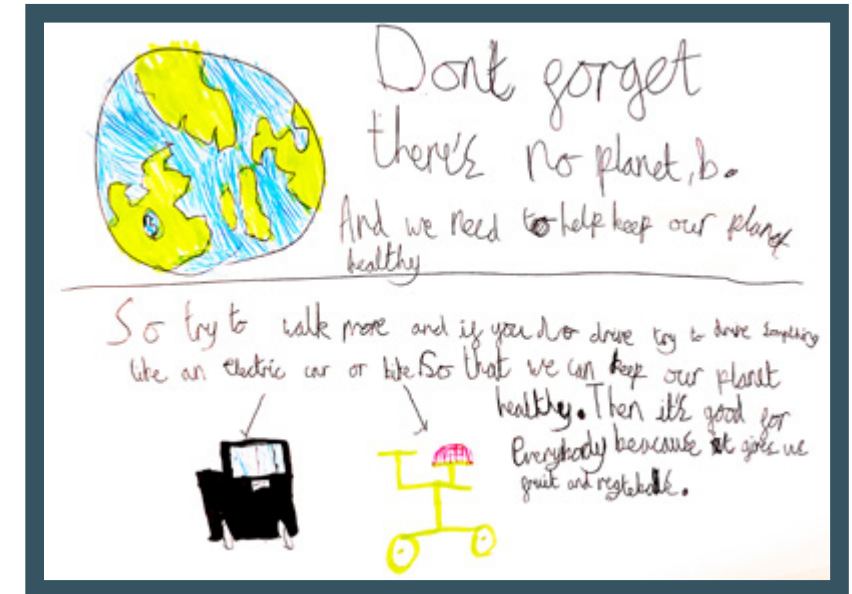 Dont forget
there's no planet, b.
And we need to help keep our planet
healthy
So try to walk more and if you do drive try to drive something
like an electric car or bike So that we can keep our planet
healthy. Then it's good for
Everybody beacause it gives us
fruit and